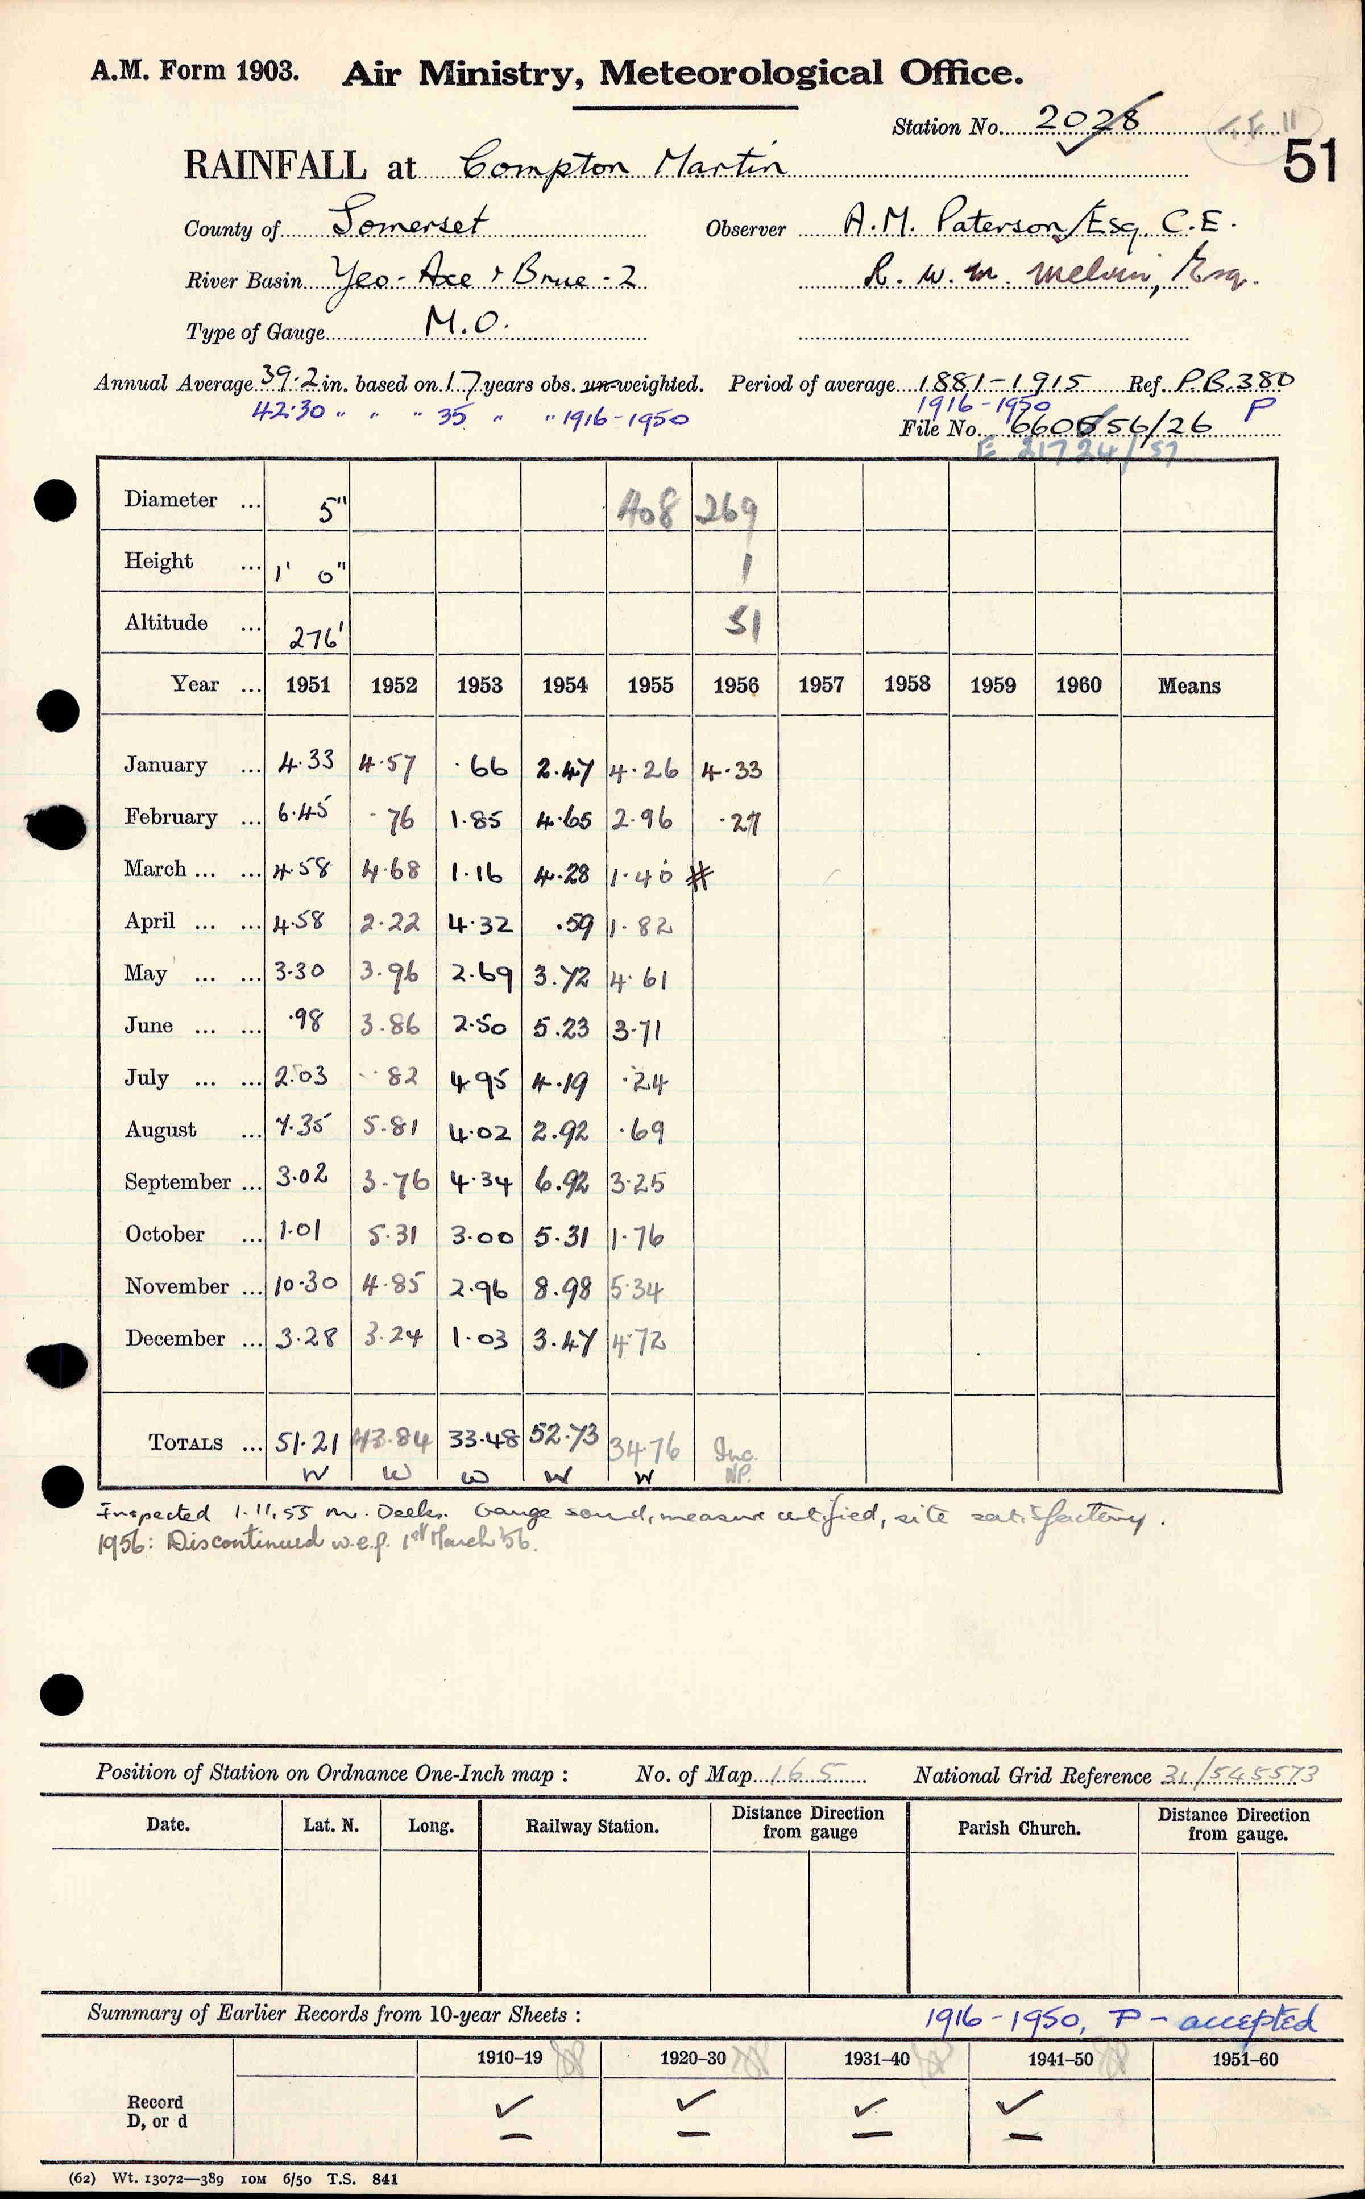 A.M. Form 1903. Air Ministry, Meteorological Office.
Station No. 2028
51
RAINFALL at Compton Martin
County of Somerset Observer A.M. Paterson, Esq. C.E.
River Basin Yeo - Axe & Brue - 2 R. W. M. Melvin, Esq.
Type of Gauge M.O.
Annual Average 39.2 in. based on 17 years obs. un-weighted. Period of average 1881-1915 Ref. P.B.380
42.30 " " " 35 " " 1916-1950 1916-1950 P
File No. 56/26
E 21724/57
Diameter ... 5" 408 269
Height ... 1' 0" 1
Altitude ... 276' 51
Year ... 1951 1952 1953 1954 1955 1956 1957 1958 1959 1960 Means
January ... 4.33 4.57 .66 2.47 4.26 4.33
February ... 6.45 .76 1.85 4.65 2.96 .27
March ... ... 4.58 4.68 1.16 4.28 1.40 #
April ... ... 4.58 2.22 4.32 .59 1.82
May ... ... 3.30 3.96 2.69 3.72 4.61
June ... ... .98 3.86 2.50 5.23 3.71
July ... ... 2.03 .82 4.95 4.19 .24
August ... 7.35 5.81 4.02 2.92 .69
September ... 3.02 3.76 4.34 6.92 3.25
October ... 1.01 5.31 3.00 5.31 1.76
November ... 10.30 4.85 2.96 8.98 5.34
December ... 3.28 3.24 1.03 3.47 4.72
TOTALS ... 51.21 43.84 33.48 52.73 34.76 Inc.
W W W W W NP.
Inspected 1.11.55 Mr. Deeks. Gauge sound, measure certified, site satisfactory.
1956: Discontinued w.e.f. 1st March '56.
Position of Station on Ordnance One-Inch map : No. of Map 165 National Grid Reference 31/545573
Date. Lat. N. Long. Railway Station. Distance Direction from gauge Parish Church. Distance Direction from gauge.
Summary of Earlier Records from 10-year Sheets : 1916-1950, P - accepted
1910-19 1920-30 1931-40 1941-50 1951-60
Record
D, or d
✓ ✓ ✓ ✓
(62) Wt. 13072—389 10M 6/50 T.S. 841